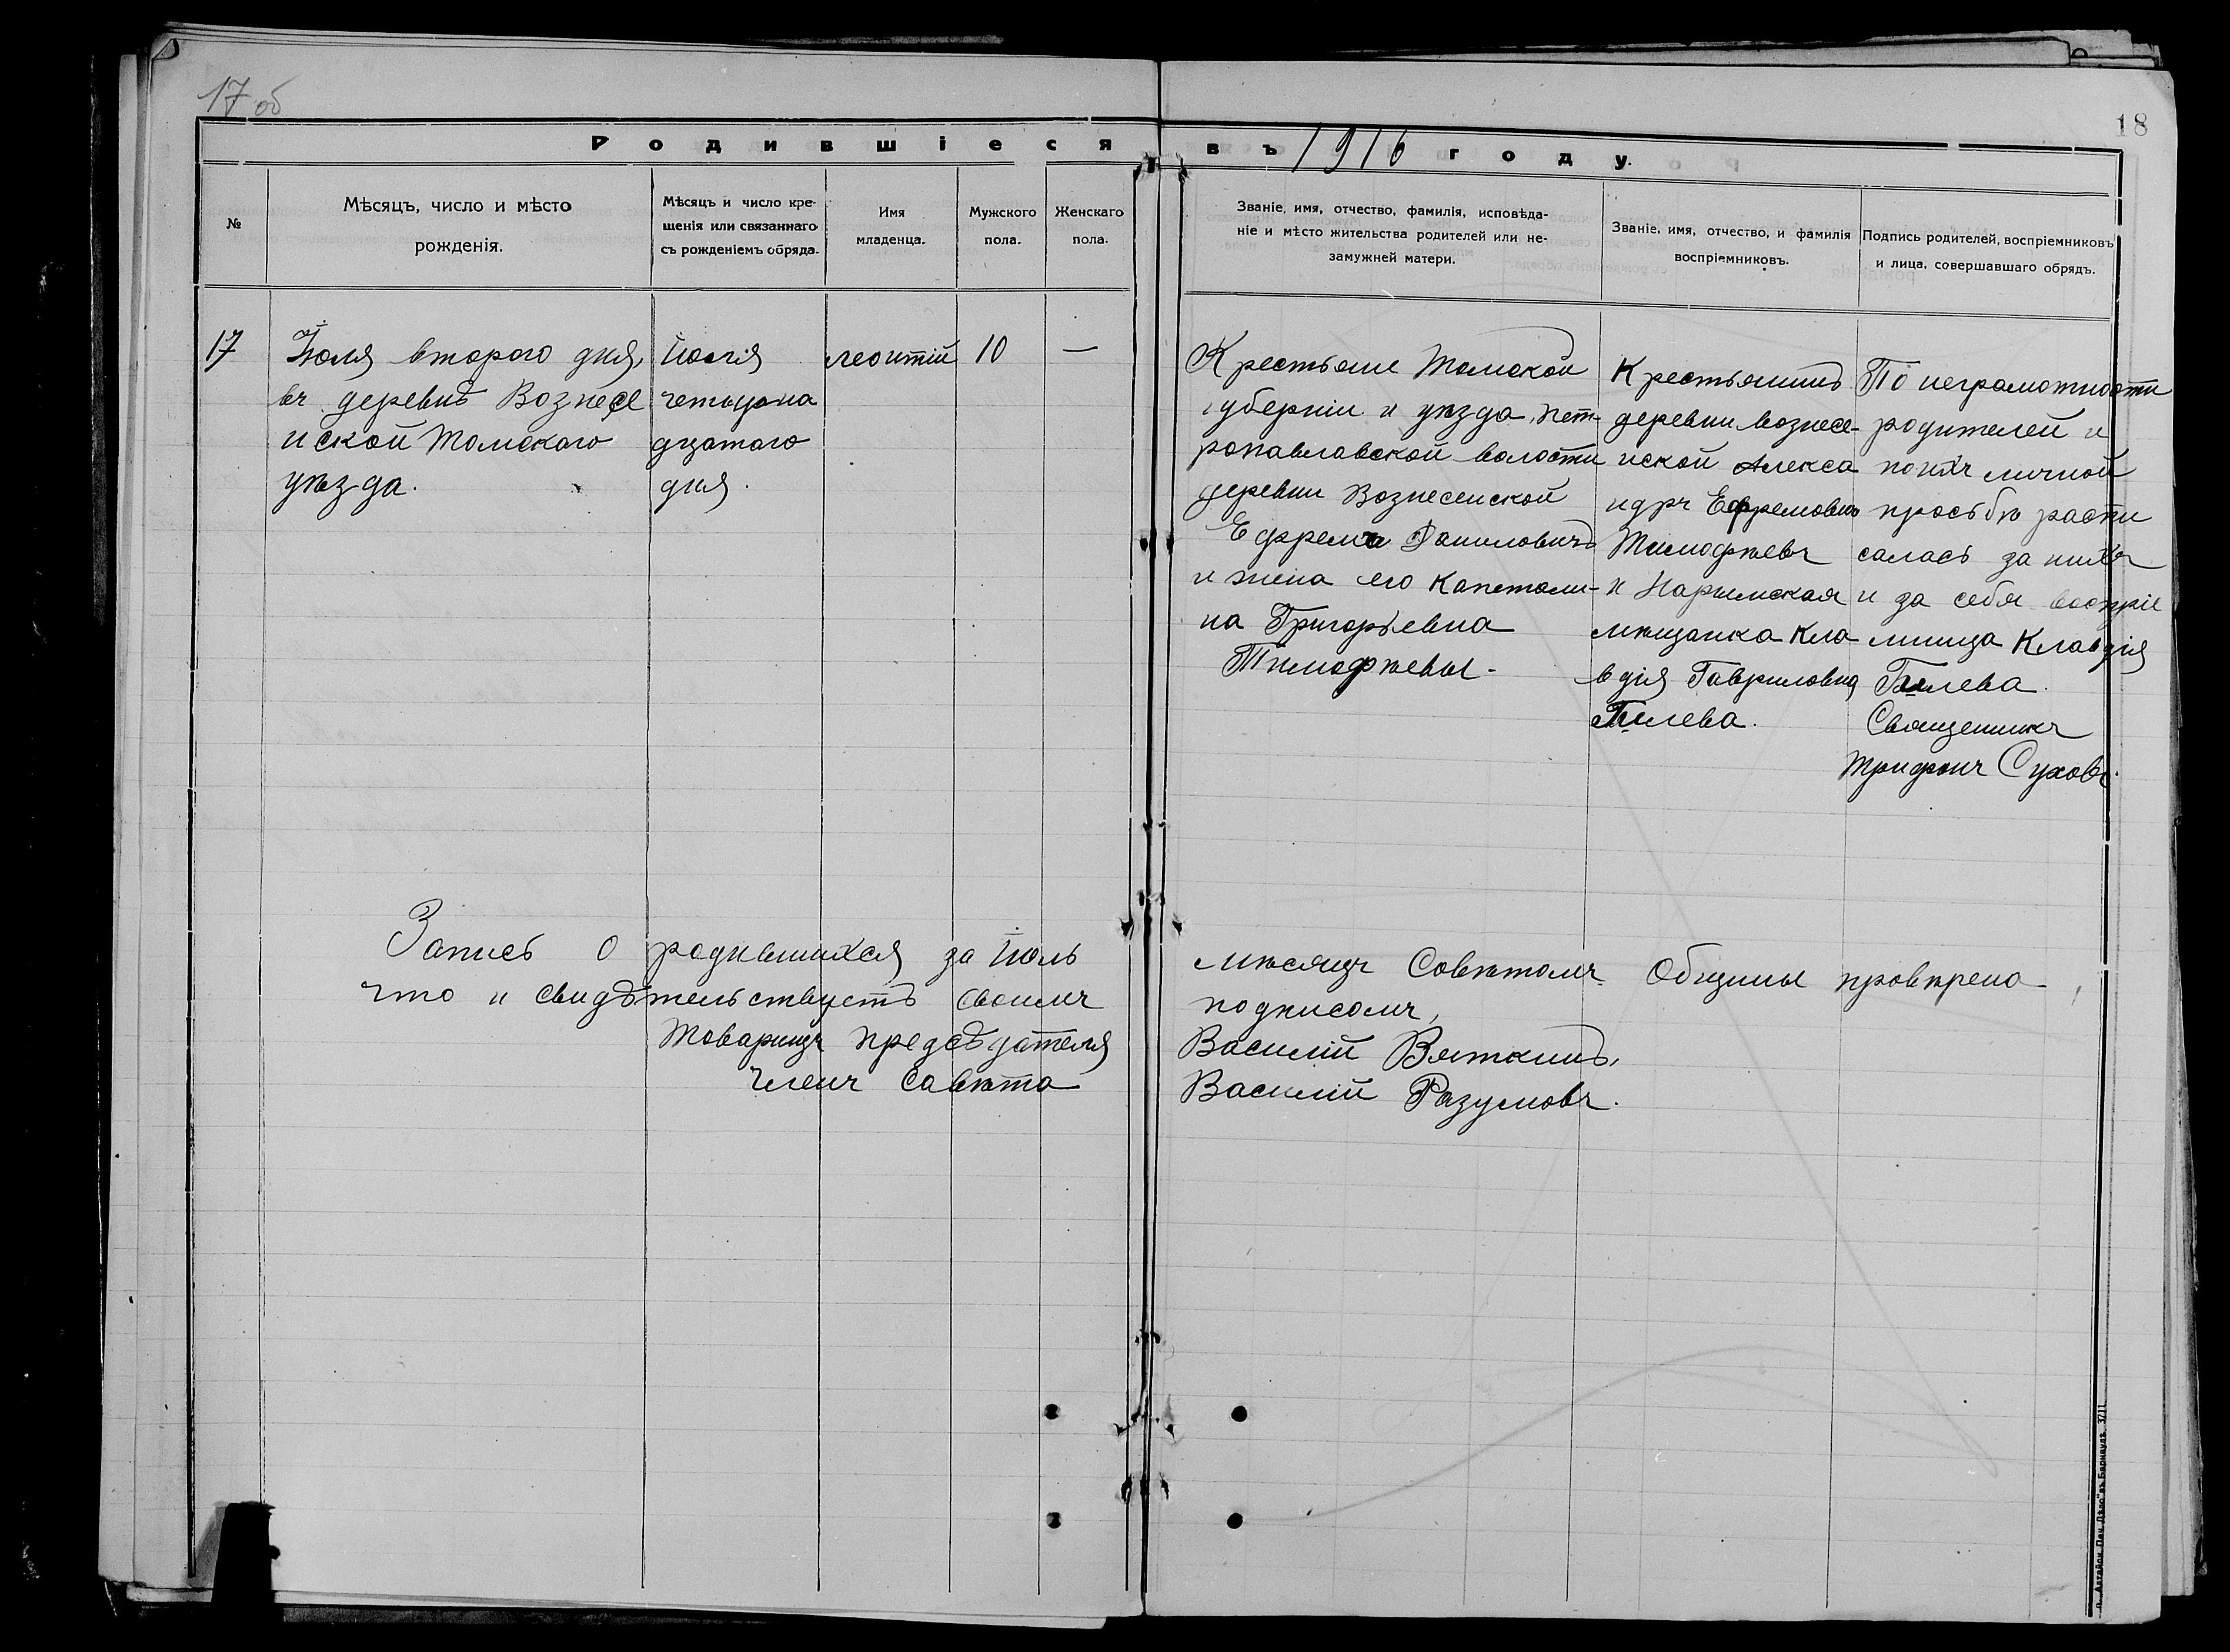 17 об
18
Родившіеся въ 1916 году.
№
Мѣсяцъ, число и мѣсто
рожденія.
Мѣсяцъ и число кре-
щенія или связаннаго
съ рожденіемъ обряда.
Имя
младенца.
Мужского
пола.
Женскаго
пола.
Званіе, имя, отчество, фамилія, исповѣда-
ніе и мѣсто жительства родителей или не-
замужней матери.
Званіе, имя, отчество, и фамилія
воспріемниковъ.
Подпись родителей, воспріемниковъ
и лица, совершавшаго обрядъ.
17
Іюля второго дня,
въ деревнѣ Вознесе
нской Томскаго
уѣзда.
Іюля
четырна
дцатаго
дня.
Леонтій
10
—
Крестьяне Томской
губерніи и уѣзда, Пет-
ропавлавской волости
деревни Вознесенской
Ефремъ Даниловичъ
и жена его Капетали-
на Григорьевна
Тимофѣевы-
Крестьянинъ
деревни Вознесе-
нской Алекса
ндръ Ефремовичъ
Тимофѣевъ
и Нарымская
мѣщанка Кла
вдія Гавриловна
Гилева.
По неграмотности
родителей и
по ихъ личной
просьбѣ распи
салась за нихъ
и за себя воспріе
мница Клавдія
Гилева.
Священникъ
Трифонъ Суховъ.
Запись о родившихся за Іюль мѣсяцъ Совѣтомъ Общины провѣрена-,
что и свидѣтельствуетъ своимъ подписомъ,
Товарищъ предсѣдателя Василій Вяткинъ,
Членъ Савѣта Василій Разумовъ.